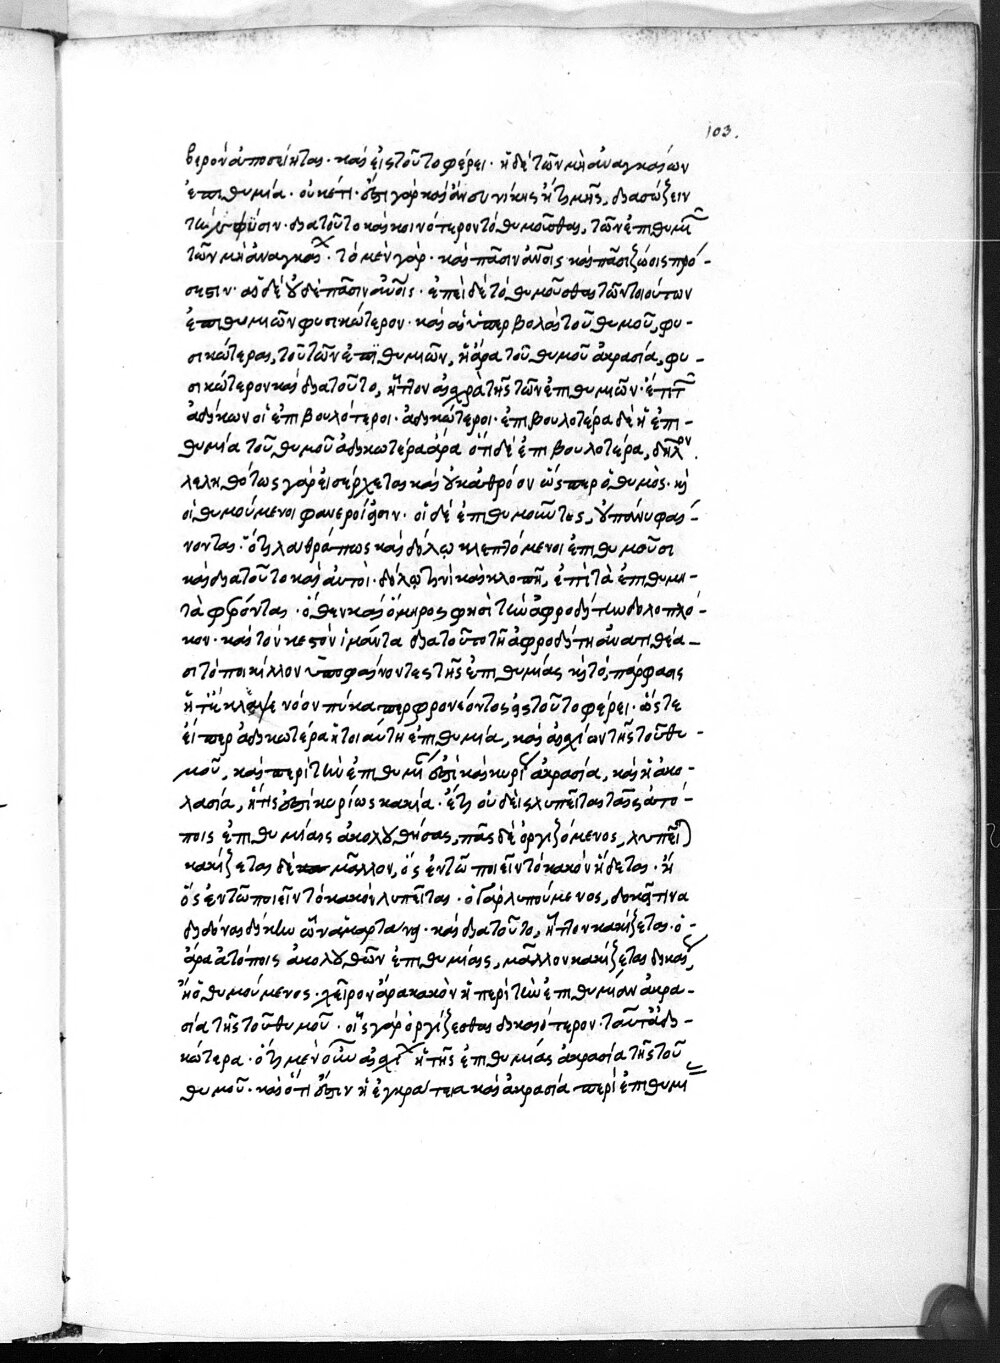 103.
βερὸν ἀποσείηται· καὶ εἰς τοῦτο φέρει· ἡ δὲ τῶν μὴ ἀναγκαίων
ἐπιθυμία· οὐκέτι· ἔστι γὰρ καὶ ἄνευ νίκης ἢ τιμῆς, διασώζειν
τὴν φύσιν· διὰ τοῦτο καὶ κοινότερον τὸ θυμοῦσθαι, τῶν ἐπιθυμιῶν
τῶν μὴ ἀναγκαίων· τὸ μὲν γὰρ· καὶ πᾶσιν ἀνοῖς καὶ πᾶσι ζώοις πρό-
σεστιν· αἱ δὲ οὐδὲ πᾶσιν ἀνοῖς· ἐπεὶ δὲ τὸ θυμοῦσθαι τῶν τοιούτων
ἐπιθυμιῶν φυσικώτερον· καὶ αἱ ὑπερβολαὶ τοῦ θυμοῦ, φυ-
σικώτεραι, τούτων ἐπιθυμιῶν, ἡ ἄρα τοῦ θυμοῦ ἀκρασία, φυ-
σικώτερον καὶ διὰ τοῦτο, ἧττον αἰσχρὰ τῆς τῶν ἐπιθυμιῶν· ἔτι τῶν
ἀδίκων οἱ ἐπιβουλότεροι· ἀδικώτεροι· ἐπιβουλοτέρα δὲ ἡ ἐπι-
θυμία τοῦ θυμοῦ ἀδικωτέρα ἄρα ὅτι δὲ ἐπιβουλοτέρα, δῆλον.
λεληθότως γὰρ εἰσέρχεται καὶ οὐκ ἀθρόον ὥσπερ ὁ θυμός· καὶ
οἱ θυμούμενοι φανεροί εἰσιν· οἱ δὲ ἐπιθυμοῦντες, οὐ πάνυ φαί-
νονται· ὅτι λαθραίως καὶ δόλῳ κλεπτόμενοι ἐπιθυμοῦσι
καὶ διὰ τοῦτο καὶ αὐτοὶ· δόλῳ τινὶ καὶ κλοπῇ, ἐπὶ τὰ ἐπιθυμη-
τὰ φέρονται· ὅθεν καὶ ὅμηρος φησὶ τὴν ἀφροδίτην δολοπλό-
κον· καὶ τὸν κεστὸν ἱμάντα διὰ τοῦτο τῇ ἀφροδίτῃ ἀνατιθέα-
σι τὸ ποικίλλον ὑποφαίνοντες τῆς ἐπιθυμίας καὶ τὸ, πάρφασις
ἥ τ' ἔκλεψε νόον πύκα περ φρονέοντος εἰς τοῦτο φέρει· ὥστε
εἴπερ ἀδικωτέρα ἡ τοιαύτη ἐπιθυμία, καὶ αἰσχίων τῆς τοῦ θυ-
μοῦ, καὶ περὶ τὴν ἐπιθυμίαν ἐστὶ καὶ κυρίως ἀκρασία, καὶ ἡ ἀκο-
λασία, ἥτις ἐστὶ κυρίως κακία· ἔτι οὐδεὶς λυπεῖται ταῖς ἀτό-
ποις ἐπιθυμίαις ἀκολουθήσας, πᾶς δὲ ὀργιζόμενος, λυπεῖται
κακίζεται δὲ μᾶλλον, ὃς ἐν τῷ ποιεῖν τὸ κακὸν ἥδεται· ἢ
ὃς ἐν τῷ ποιεῖν τὸ κακὸν λυπεῖται· ὁ γὰρ λυπούμενος, δοκεῖ τινα
διδόναι δίκην ὧν ἁμαρτάνει· καὶ διὰ τοῦτο, ἧττον κακίζεται· ὁ
ἄρα ἀτόποις ἀκολουθῶν ἐπιθυμίαις, μᾶλλον κακίζεται δικαίως
ἢ ὁ θυμούμενος· χεῖρον ἄρα κακὸν ἡ περὶ τὴν ἐπιθυμίαν ἀκρα-
σία τῆς τοῦ θυμοῦ· οἷς γὰρ ὀργίζεσθαι δικαιότερον· ταῦτα ἀδι-
κώτερα· ὅτι μὲν οὖν αἰσχίων ἡ τῆς ἐπιθυμίας ἀκρασία τῆς τοῦ
θυμοῦ· καὶ ὅτι ἔστιν ἡ ἐγκράτεια καὶ ἀκρασία περὶ ἐπιθυμίας